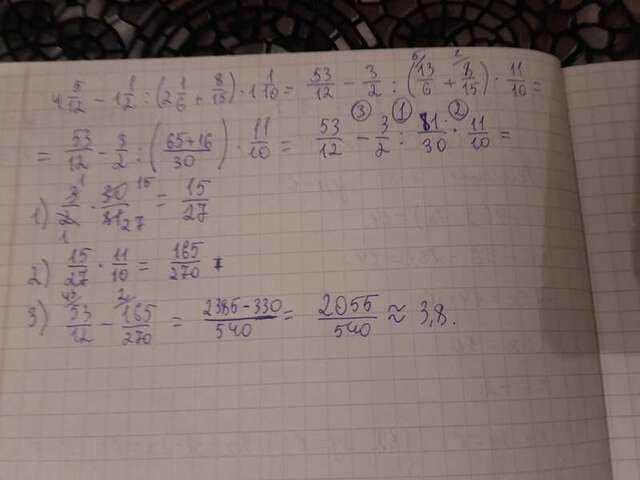 4 5/12 - 1 1/2 : (2 1/6 + 8/15) · 1 1/10 = 53/12 - 3/2 : (13/6 + 8/15) · 11/10 =
= 53/12 - 3/2 : (65+16/30) · 11/10 = 53/12 - 3/2 : 81/30 · 11/10 =
1) 3/2 · 30/81 = 15/27
2) 15/27 · 11/10 = 165/270
3) 53/12 - 165/270 = 2385-330/540 = 2055/540 ≈ 3,8.